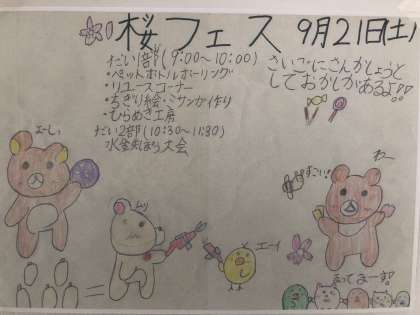 桜フェス 9月21日(土)
だい1部(9:00〜10:00)
・ペットボトルボーリング
・リユースコーナー
・ちぎり絵・ミサンガ作り
・ひらめき工房
だい2部(10:30〜11:30)
水金失ほう大会
さいごにさんかしょうと
しておかしがあるよ!!
よーしぃ
ムリ
エーイ
すごい!
わー
まってまーす!